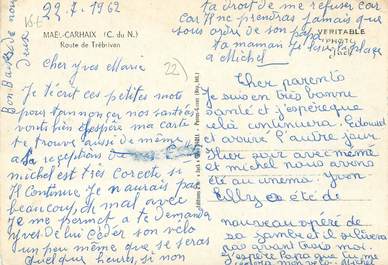 22-7-1962
MAËL-CARHAIX (C. du N.)
Route de Trébrivan
VERITABLE
PHOTO
Cher Yves Marie
Je t'écrit ces petites mots
pour t'annoncer nos santées
vont bien espère ma carte
te trouve aussi de même
a sa reception
michel est très corecte si
Il continue Je n'aurais pas
beaucoup de mal avec
Je me permet a te demander
Yves de lui céder son velo
un peu même que se seras
Quelque heures, si non
Bon Baiser de nous
Deux
ta droit de me refuser car
car Il ne prendras jamais que
sous ordre de son papa
ta maman
a Michel
22
Cher parents
Je suis en très bonne
santé et j'espère que
cela continuera. Edouard
a arrivé l'autre jour
Hier soir
et michel nous avons
été au cinema. Yvon
Elly a été de
nouveau opéré de
sa jambe et il
pas avant trois moi.
J'espère Papa que tu me
mon velo. Michel